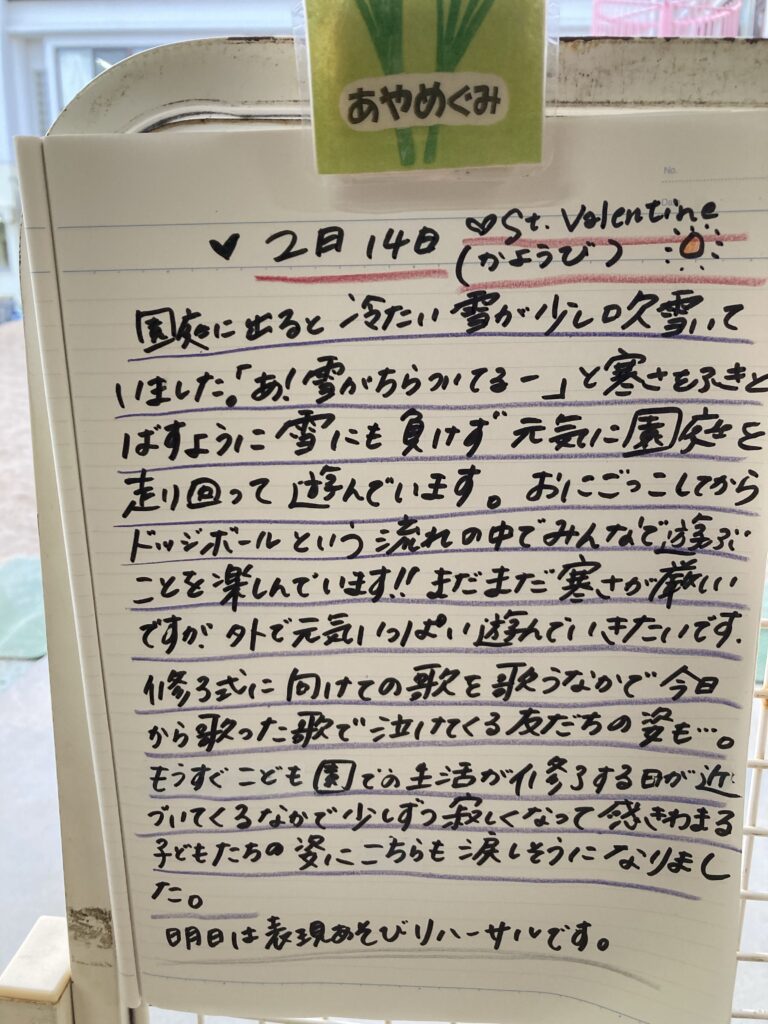 あやめぐみ
No.
♥ 2月14日 ♡St. Valentine
(かようび)
園庭に出ると冷たい雪が少し吹雪いて
いました。「あ!雪がちらついてるー」と寒さをふきと
ばすように雪にも負けず元気に園庭を
走り回って遊んでいます。おにごっこしてから
ドッジボールという流れの中でみんなで遊ぶ
ことを楽しんでいます!!まだまだ寒さが厳しい
ですが外で元気いっぱい遊んでいきたいです.
修了式に向けての歌を歌うなかで今日
から歌った歌で泣けてくる友だちの姿も…。
もうすぐこども園での生活が修了する日が近
づいてくるなかで少しずつ寂しくなって感きわまる
子どもたちの姿にこちらも涙しそうになりまし
た。
明日は表現あそびリハーサルです。